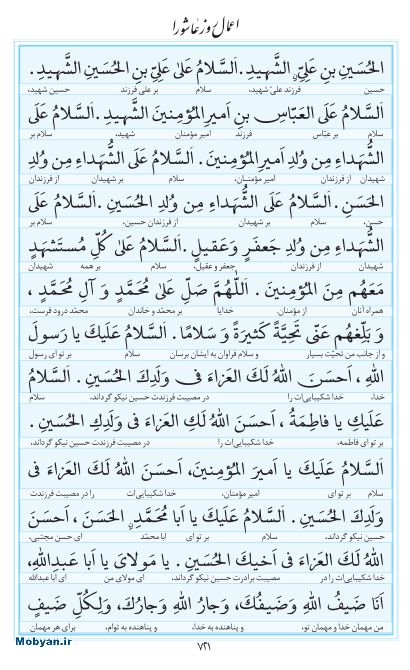 اعمال روز عاشورا
الحُسَینِ بنِ عَلِیٍّ الشَّهیدِ . اَلسَّلامُ عَلیٰ عَلِیِّ بنِ الحُسَینِ الشَّهیدِ .
حسین فرزند علی شهید، سلام بر علی فرزند حسین شهید،
اَلسَّلامُ عَلَی العَبّاسِ بنِ اَمیرِ المُؤمِنینَ الشَّهیدِ . اَلسَّلامُ عَلَی
سلام بر عبّاس فرزند امیر مؤمنان شهید، سلام بر
الشُّهَداءِ مِن وُلدِ اَمیرِ المُؤمِنینَ . اَلسَّلامُ عَلَی الشُّهَداءِ مِن وُلدِ
شهیدان از فرزندان امیر مؤمنان، سلام بر شهیدان از فرزندان
الحَسَنِ . اَلسَّلامُ عَلَی الشُّهَداءِ مِن وُلدِ الحُسَینِ . اَلسَّلامُ عَلَی
حسن، سلام بر شهیدان از فرزندان حسین، سلام بر
الشُّهَداءِ مِن وُلدِ جَعفَرٍ وَ عَقیلٍ . اَلسَّلامُ عَلیٰ کُلِّ مُستَشهَدٍ
شهیدان از فرزندان جعفر و عقیل، سلام بر همه شهیدان
مَعَهُم مِنَ المُؤمِنینَ . اَللّٰهُمَّ صَلِّ عَلیٰ مُحَمَّدٍ وَ آلِ مُحَمَّدٍ ،
همراه آنان از مؤمنان. خدایا بر محمّد و خاندان محمّد درود فرست،
وَ بَلِّغهُم عَنّی تَحِیَّةً کَثیرَةً وَ سَلامًا . اَلسَّلامُ عَلَیكَ یا رَسولَ
و از جانب من تحیّت بسیار و سلام فراوان به ایشان برسان سلام بر تو ای رسول
اللهِ ، اَحسَنَ اللهُ لَكَ العَزاءَ فی وَلَدِكَ الحُسَینِ . اَلسَّلامُ
خدا، خدا شکیبایی‌ات را در مصیبت فرزندت حسین نیکو گرداند، سلام
عَلَیكِ یا فاطِمَةُ ، اَحسَنَ اللهُ لَكِ العَزاءَ فی وَلَدِكِ الحُسَینِ .
بر تو ای فاطمه، خدا شکیبایی‌ات را در مصیبت فرزندت حسین نیکو گرداند،
اَلسَّلامُ عَلَیكَ یا اَمیرَ المُؤمِنینَ، اَحسَنَ اللهُ لَكَ العَزاءَ فی
سلام بر تو ای امیر مؤمنان، خدا شکیبایی‌ات را در مصیبت فرزندت
وَلَدِكَ الحُسَینِ . اَلسَّلامُ عَلَیكَ یا اَبا مُحَمَّدٍ الحَسَنَ ، اَحسَنَ
حسین نیکو گرداند، سلام بر تو ای ابا محمّد ای حسن مجتبی،
اللهُ لَكَ العَزاءَ فی اَخیكَ الحُسَینِ . یا مَولایَ یا اَبا عَبدِاللهِ،
خدا شکیبایی‌ات را در مصیبت برادرت حسین نیکو گرداند، ای مولای من ای ابا عبدالله
اَنَا ضَیفُ اللهِ وَضَیفُكَ، وَجارُ اللهِ وَجارُكَ، وَلِکُلِّ ضَیفٍ
من مهمان خدا و مهمان تو، و پناهنده به خدا، و پناهنده به توام، برای هر مهمان
Mobyan.ir
۷۲۱